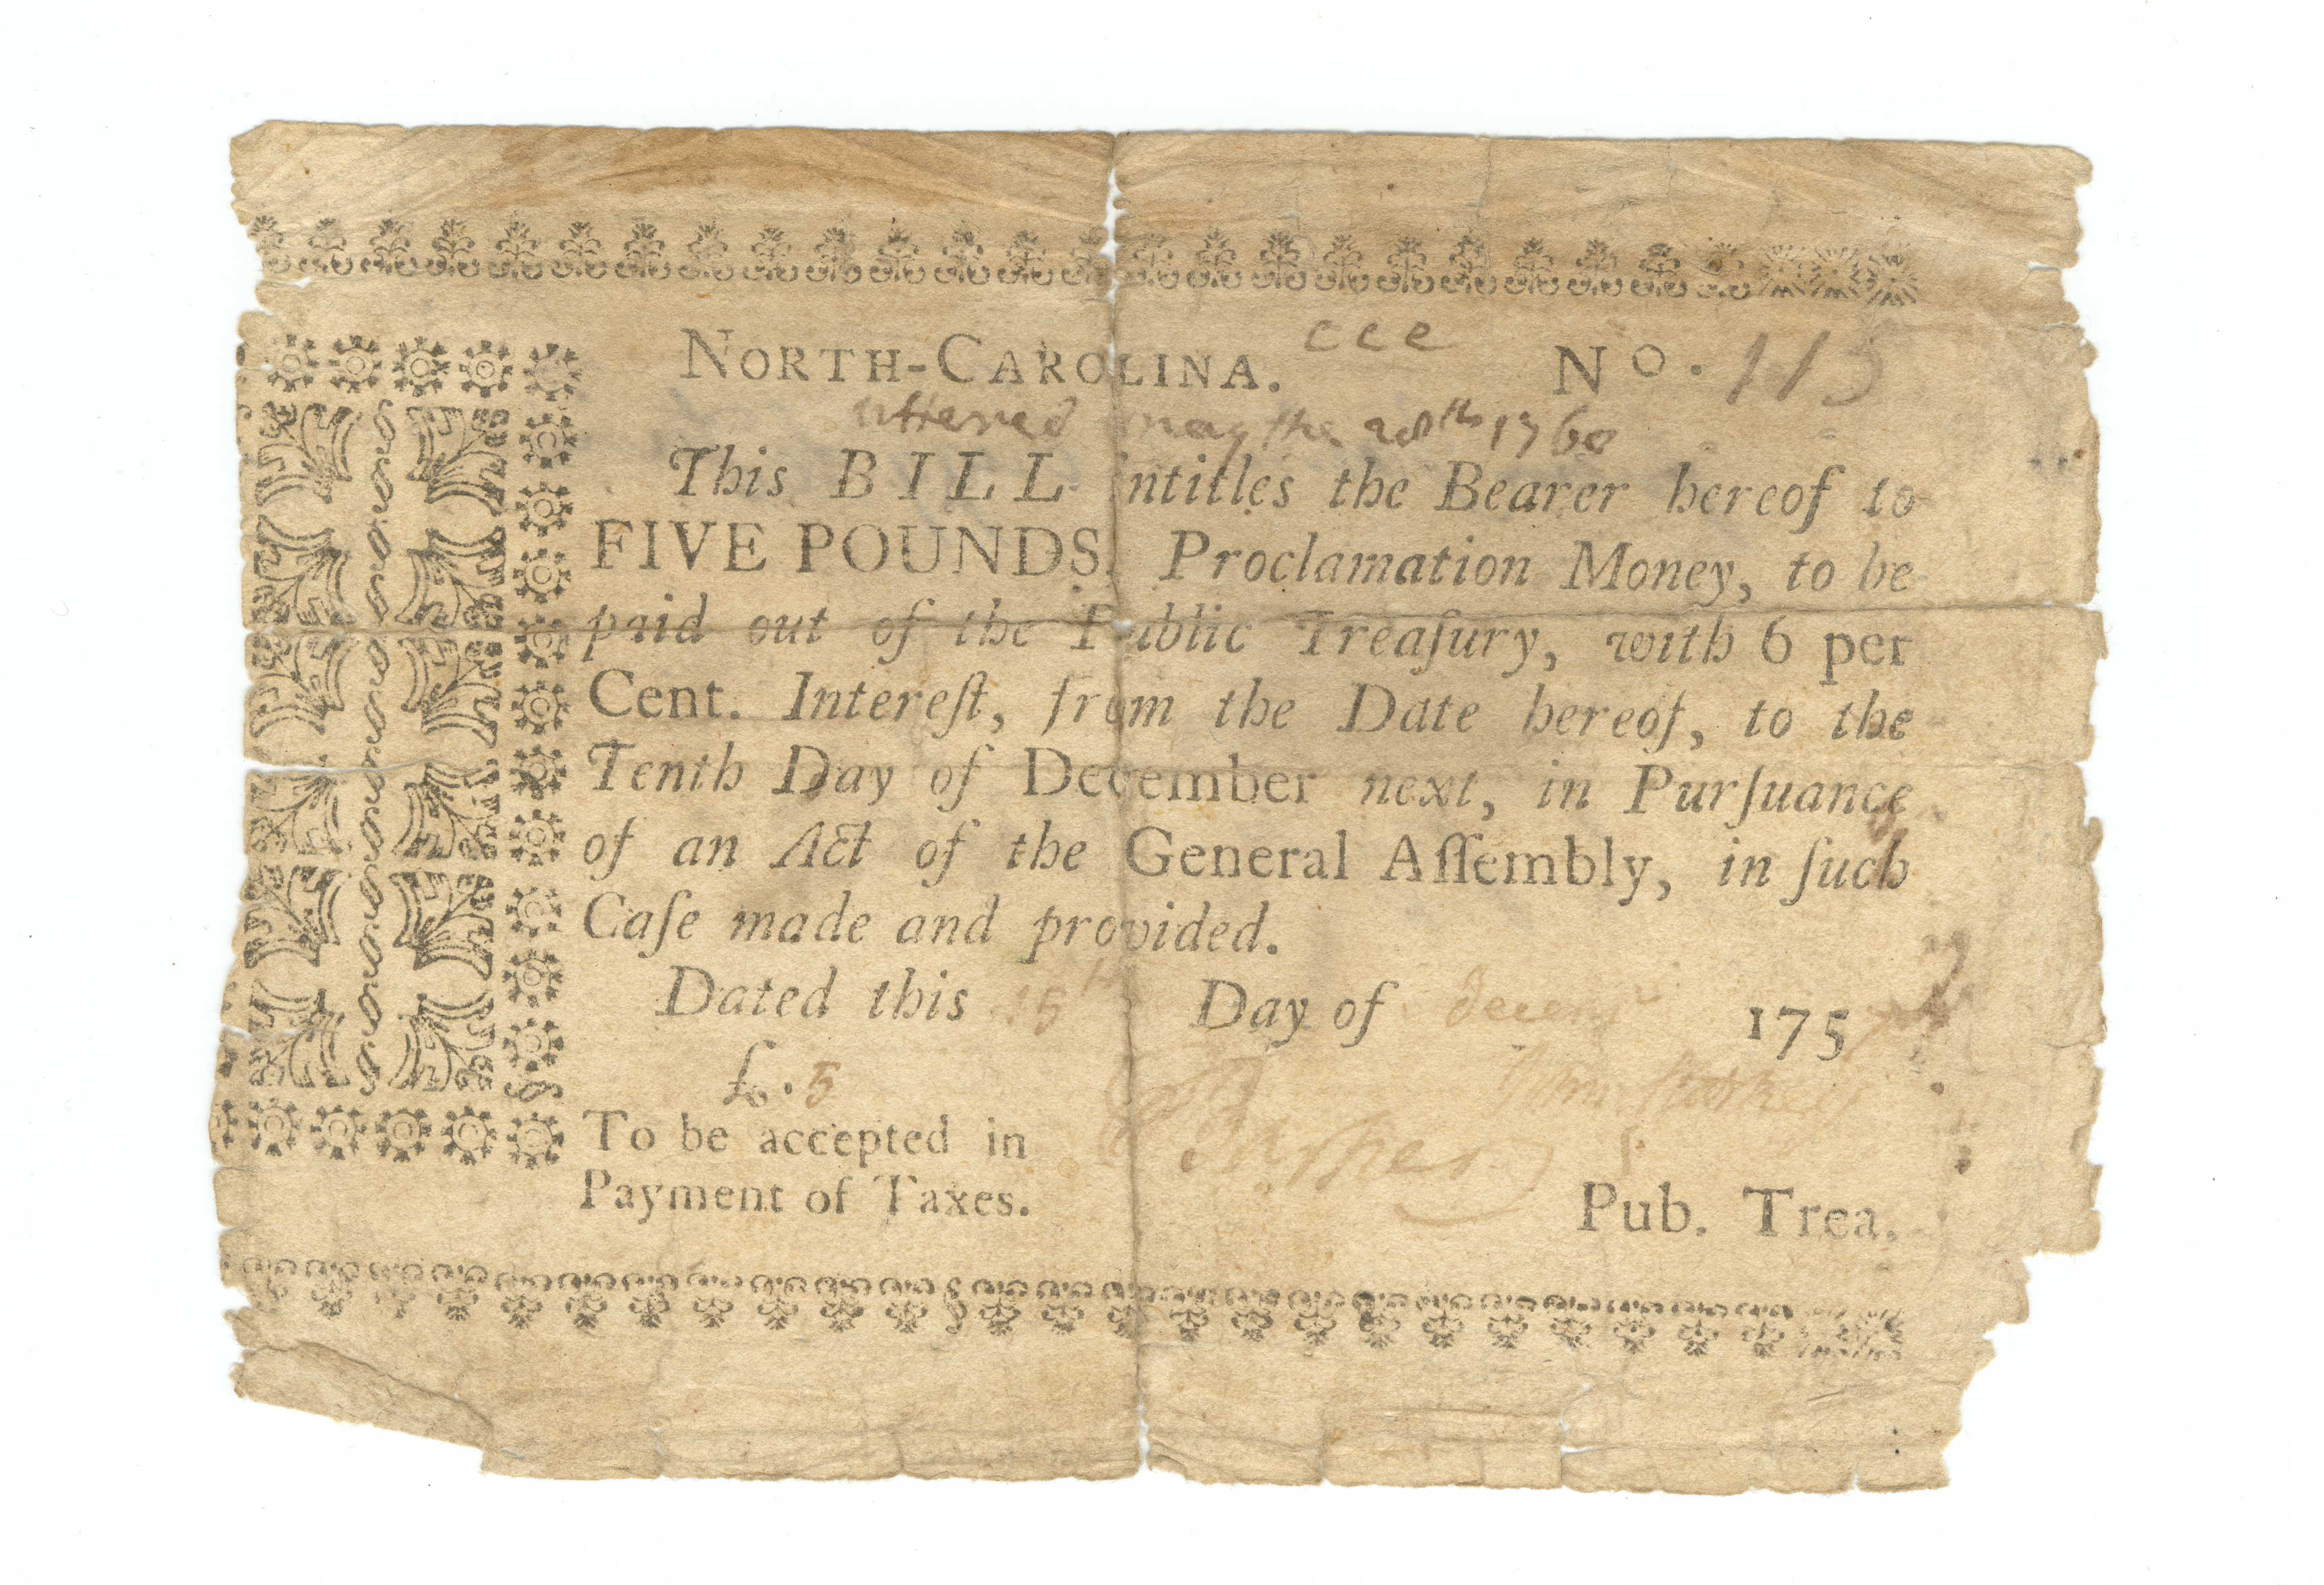 NORTH-CAROLINA. ccc No. 115
uttered may the 28th 1760
This BILL entitles the Bearer hereof to
FIVE POUNDS, Proclamation Money, to be
paid out of the Public Treaſury, with 6 per
Cent. Intereſt, from the Date hereof, to the
Tenth Day of December next, in Purſuance
of an Act of the General Aſſembly, in ſuch
Caſe made and provided.
Dated this 15th Day of 175
£. 5
To be accepted in
Payment of Taxes.
John
Pub. Trea.